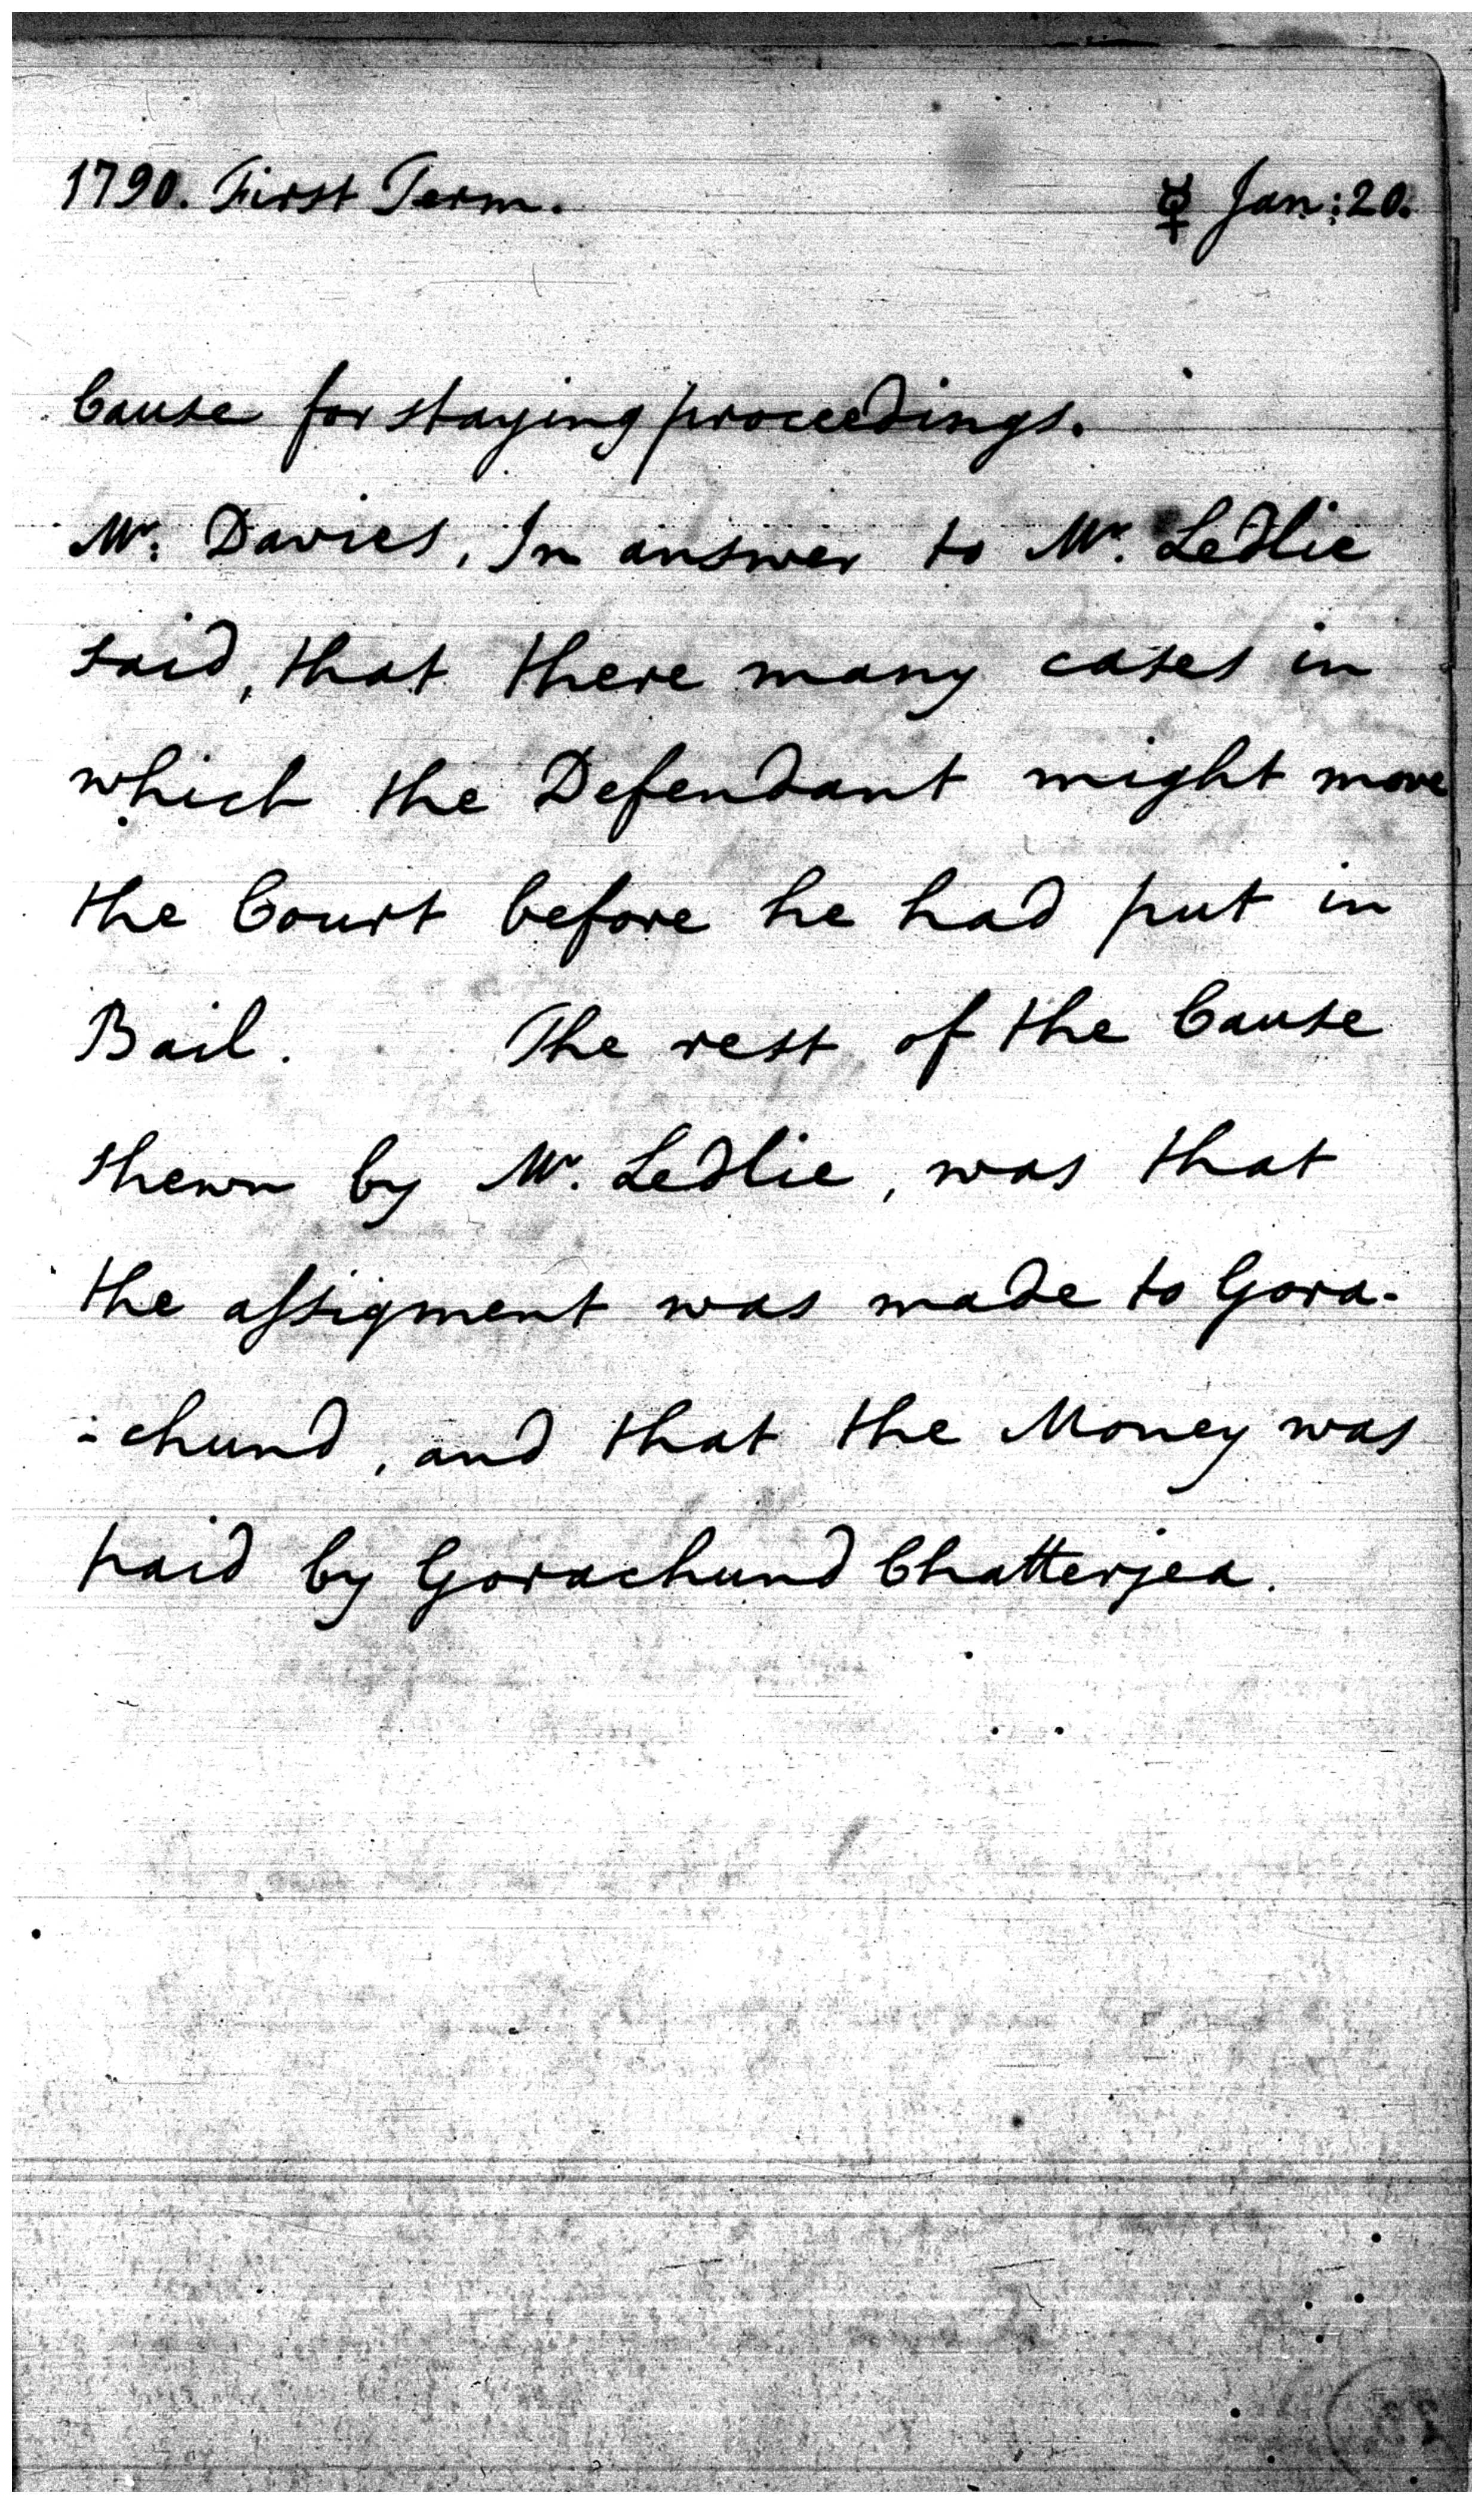 1790. First Term. ☿ Jan: 20.
Cause for staying proceedings.
Mr. Davies, In answer to Mr. Ledlie
said, that there many cases in
which the Defendant might move
the Court before he had put in
Bail. The rest of the Cause
shewn by Mr. Ledlie, was that
the aſsigment was made to Gora-
-chund, and that the Money was
paid by Gorachund Chatterjea.